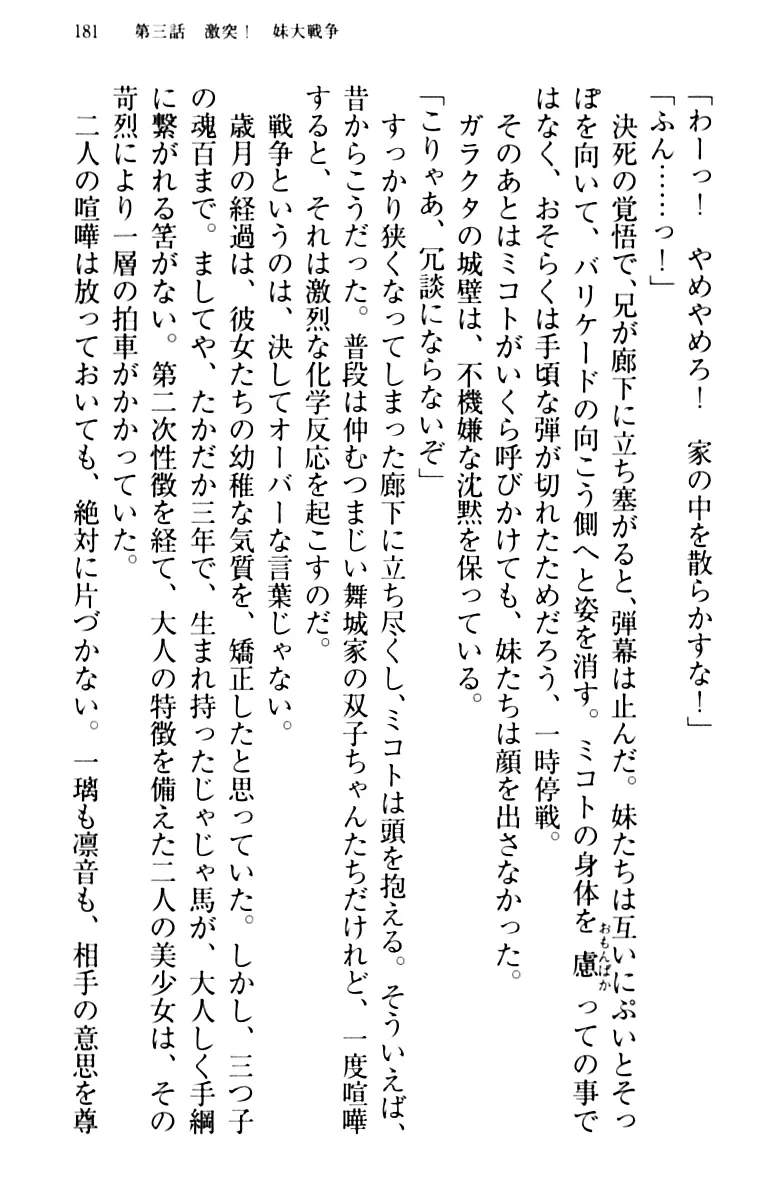 181　第三話　激突！　妹大戦争
「わーっ！　やめやめろ！　家の中を散らかすな！」
「ふん……っ！」
　決死の覚悟で、兄が廊下に立ち塞がると、弾幕は止んだ。妹たちは互いにぷいとそっ
ぽを向いて、バリケードの向こう側へと姿を消す。ミコトの身体を慮おもんぱかっての事で
はなく、おそらくは手頃な弾が切れたためだろう、一時停戦。
　そのあとはミコトがいくら呼びかけても、妹たちは顔を出さなかった。
　ガラクタの城壁は、不機嫌な沈黙を保っている。
「こりゃあ、冗談にならないぞ」
　すっかり狭くなってしまった廊下に立ち尽くし、ミコトは頭を抱える。そういえば、
昔からこうだった。普段は仲むつまじい舞城家の双子ちゃんたちだけれど、一度喧嘩
すると、それは激烈な化学反応を起こすのだ。
　戦争というのは、決してオーバーな言葉じゃない。
　歳月の経過は、彼女たちの幼稚な気質を、矯正したと思っていた。しかし、三つ子
の魂百まで。ましてや、たかだか三年で、生まれ持ったじゃじゃ馬が、大人しく手綱
に繋がれる筈がない。第二次性徴を経て、大人の特徴を備えた二人の美少女は、その
苛烈により一層の拍車がかかっていた。
　二人の喧嘩は放っておいても、絶対に片づかない。一璃も凛音も、相手の意思を尊